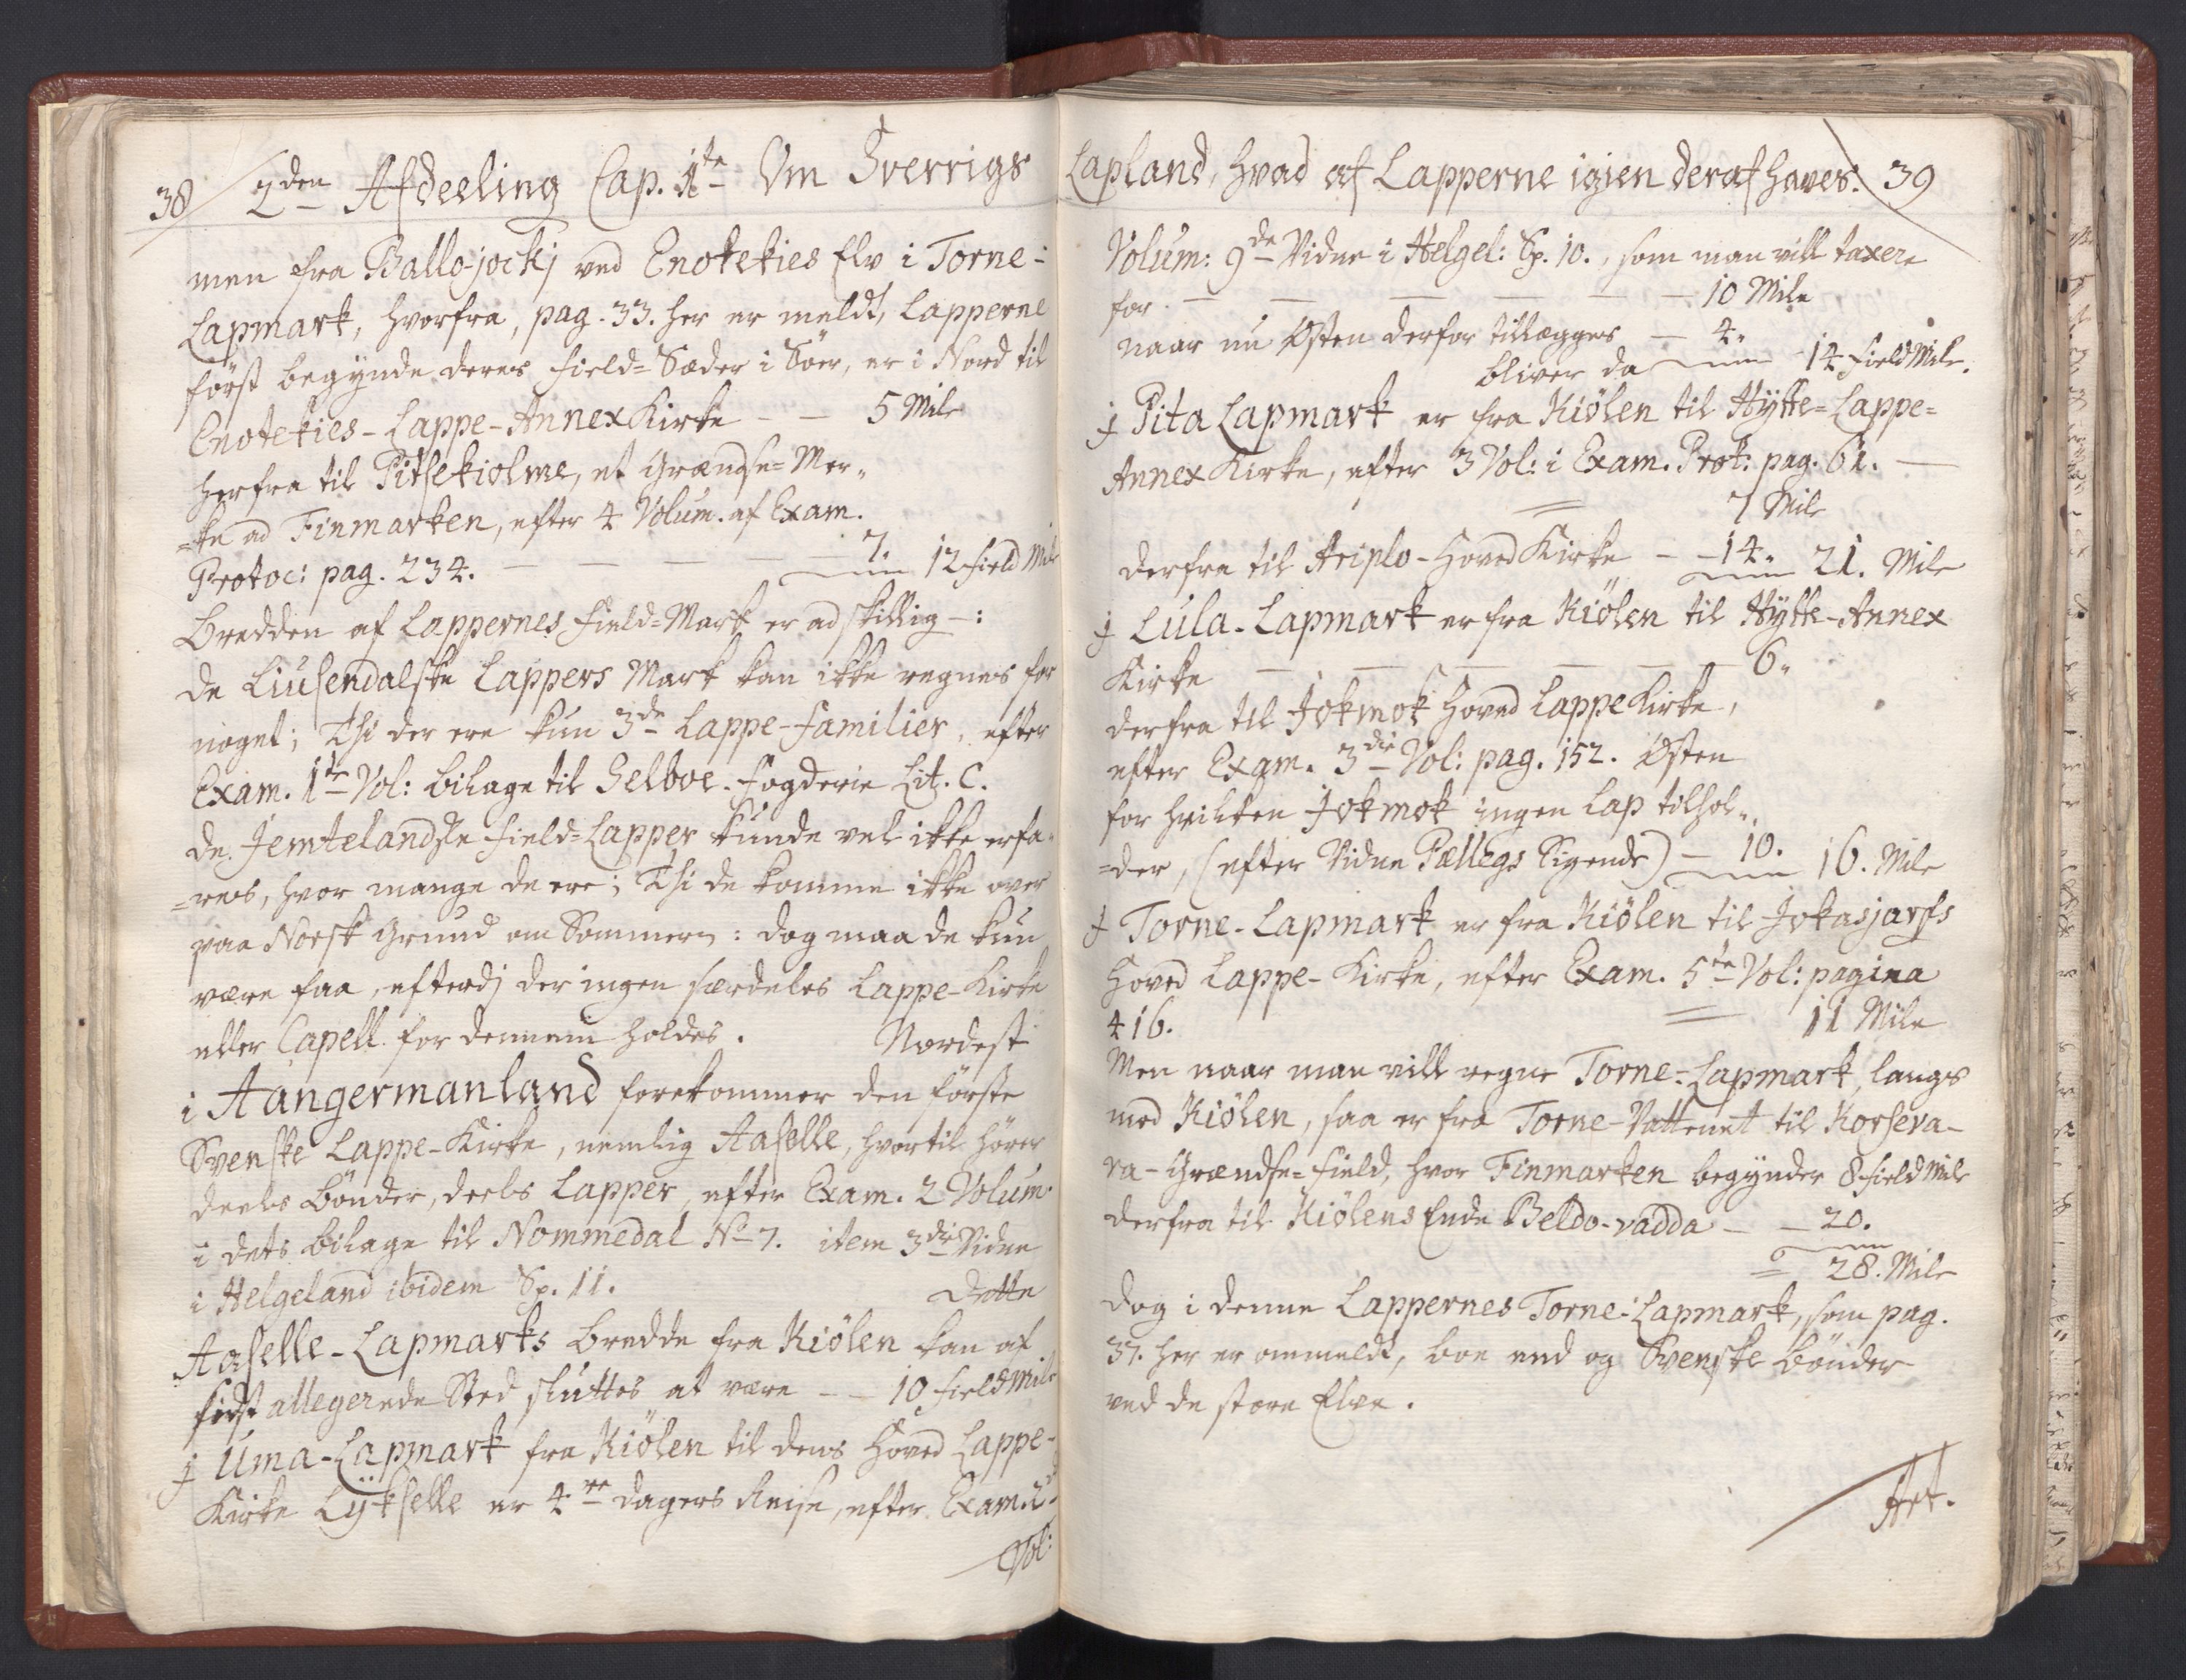 38 2den Afdeeling Cap. 1te Om Sverrigs
men fra Ballo-jockj ved Enotekies Elv i Torne-
Lapmark, hvorfra, pag. 33. her er meldt, Lapperne
først begynde deres Field-Sæder i Søer, er i Nord til
Enotekies-Lappe-Annex Kirke - - 5 Mile
herfra til Pitsekiolme, et Grændse-Mer„
=ke ad Finmarken, efter 4 Volum. af Exam.
Protoc: pag. 234. - - - - 7. 12 Field Mile
Bredden af Lappernes Field-Mark er adskillig -:
de Liusendalske Lappers Mark kan ikke regnes for
noget; Thi der ere kun 3de Lappe-familier, efter
Exam. 1te Vol: bilage til Selboe-Fogderie Lit. C.
de Jemtelandske Field-Lapper kunde vel ikke erfa„
=res, hvor mange de ere; Thi de komme ikke over
paa Norsk Grund om Sommeren: dog maa de kun
være faa, efterdj der ingen særdeles Lappe-Kirke
eller Capell for dennem holdes. Nordest
i Aangermanland forekommer den første
Svenske Lappe-Kirke, nemlig Aaselle, hvortil hører
deels Bønder, deels Lapper, efter Exam. 2 Volum.
i dets bilage til Nommedal No 7. item 3die Vidne
i Helgeland ibidem Sp. 11. Dette
Aaselle-Lapmarks bredde fra Kiølen kan af
sidst allegerede Sted sluttes at være - - 10 Field Mile
J Uma-Lapmark fra Kiølen til dens Hoved Lappe-
Kirke Lÿkselle er 4re dagers Reise, efter Exam. 2
Vol:
Lapland, hvad af Lapperne igien deraf haves. 39
Volum: 9de Vidne i Helgel: Sp. 10., som man vill taxere
for - - - - - - 10 Mile
naar nu Østen derfor tillægges - 4„
bliver da 14 Field Mile.
J Pita Lapmark er fra Kiølen til Hÿtte-Lappe-
Annex Kirke, efter 3 Vol: i Exam. Prot: pag. 61. -
= 7 Mile
derfra til Ariplo-Hoved Kirke - - 14„ 21. Mile
J Lula-Lapmark er fra Kiølen til Hÿtte-Annex
Kirke - - - - - 6„
derfra til Jokmok Hoved Lappe Kirke,
efter Exam. 3die Vol: pag. 152. Østen
for hvilken Jokmok ingen Lap tilhol„
=der, (efter Vidne Pællegs Sigende) - 10. 16. Mile
J Torne-Lapmark er fra Kiølen til Jokasjarfs
Hoved Lappe-Kirke, efter Exam. 5te Vol: pagina
416. = 11 Mile
Men naar man vill regne Torne-Lapmark langs
med Kiølen, saa er fra Torne-Vattenet til Korseva-
ra-Grændse-Field, hvor Finmarken begynder 8 Field Mile
derfra til Kiølens Ende Beldo-vadda - - 20.
= 28. Mile
dog i denne Lappernes Torne-Lapmark, som pag.
37. her er ommeldt, boe end og Svenske bønder
ved de store Elve.
Art.